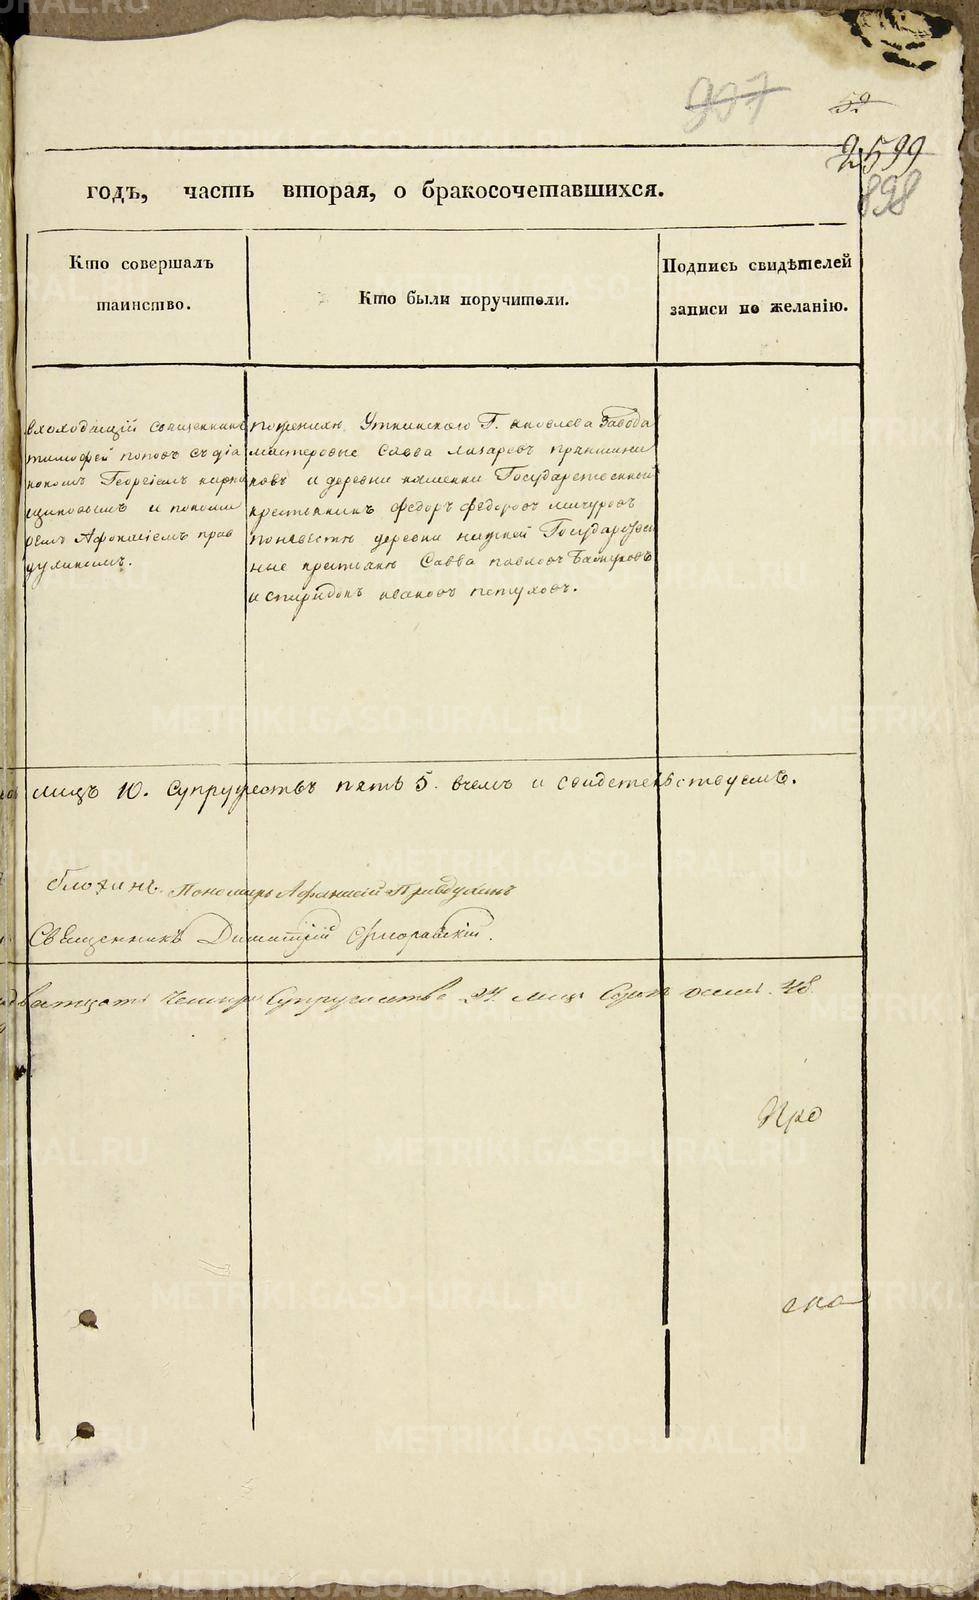 907
52
2599
898
годъ, часть вторая, о бракосочетавшихся.
Кто совершалъ
таинство.
Кто были поручители.
Подпись свидѣтелей
записи по желанію.
вхоходящій священникъ
тимофей поповъ съ діа
кономъ Георгіемъ
и понома
ремъ Афонасіемъ прав
духинымъ.
по женихѣ Уткинскаго Г. яковлева Завода
мастеровые Савва лазаревъ
ковъ и деревни каменки Государственный
крестьянинъ федоръ федоровъ мичуровъ
по невестѣ деревни нижней Государствен
ные крестьяне Савва павловъ
и спиридонъ ивановъ петуховъ.
лицъ 10. Супружествъ пять 5. вчемъ и свидетельствуемъ.
Пономарь Афанасій Правдухинъ
Священникъ Димитрій
Супружества 24. лицъ Сорокъ осемь. 48.
Про
METRIKI.GASO-URAL.RU